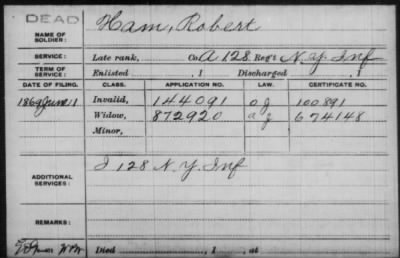 DEAD
NAME OF SOLDIER: Ham, Robert
SERVICE: Late rank, Co. A 128 Reg't N.Y. Inf
TERM OF SERVICE: Enlisted , 1 Discharged , 1
DATE OF FILING. CLASS. APPLICATION NO. LAW. CERTIFICATE NO.
1869 June 11 Invalid, 144091 100891
Widow, 872920 674148
Minor,
ADDITIONAL SERVICES: I 128 N.Y. Inf
REMARKS:
Died , 1 , at